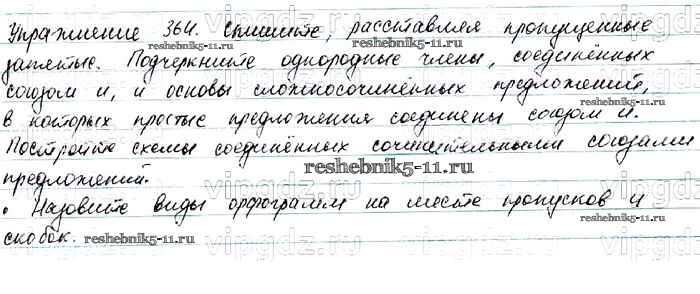 Упражнение 364. Спишите, расставляя пропущенные
запятые. Подчеркните однородные члены, соединённых
союзом и, и основы сложносочинённых предложений,
в которых простые предложения соединены союзом и.
Постройте схемы соединённых сочинительными союзами
предложений.
• Назовите виды орфограмм на месте пропусков и
скобок.
reshebnik5-11.ru
reshebnik5-11.ru
reshebnik5-11.ru
reshebnik5-11.ru
reshebnik5-11.ru
vipgdz.ru